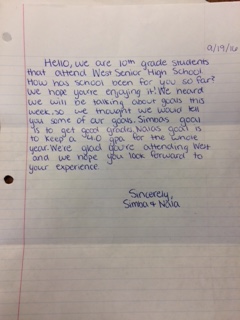 9/19/16
Hello, we are 10th grade students
that attend West Senior High School.
How has school been for you so far?
We hope you're enjoying it! We heard
we will be talking about goals this
week, so we thought we would tell
you some of our goals. Simbas goal
is to get good grades, Naias goal is
to keep a 4.0 gpa for the whole
year. We're glad you're attending West
and we hope you look forward to
your experience
Sincerely,
Simba & Naia